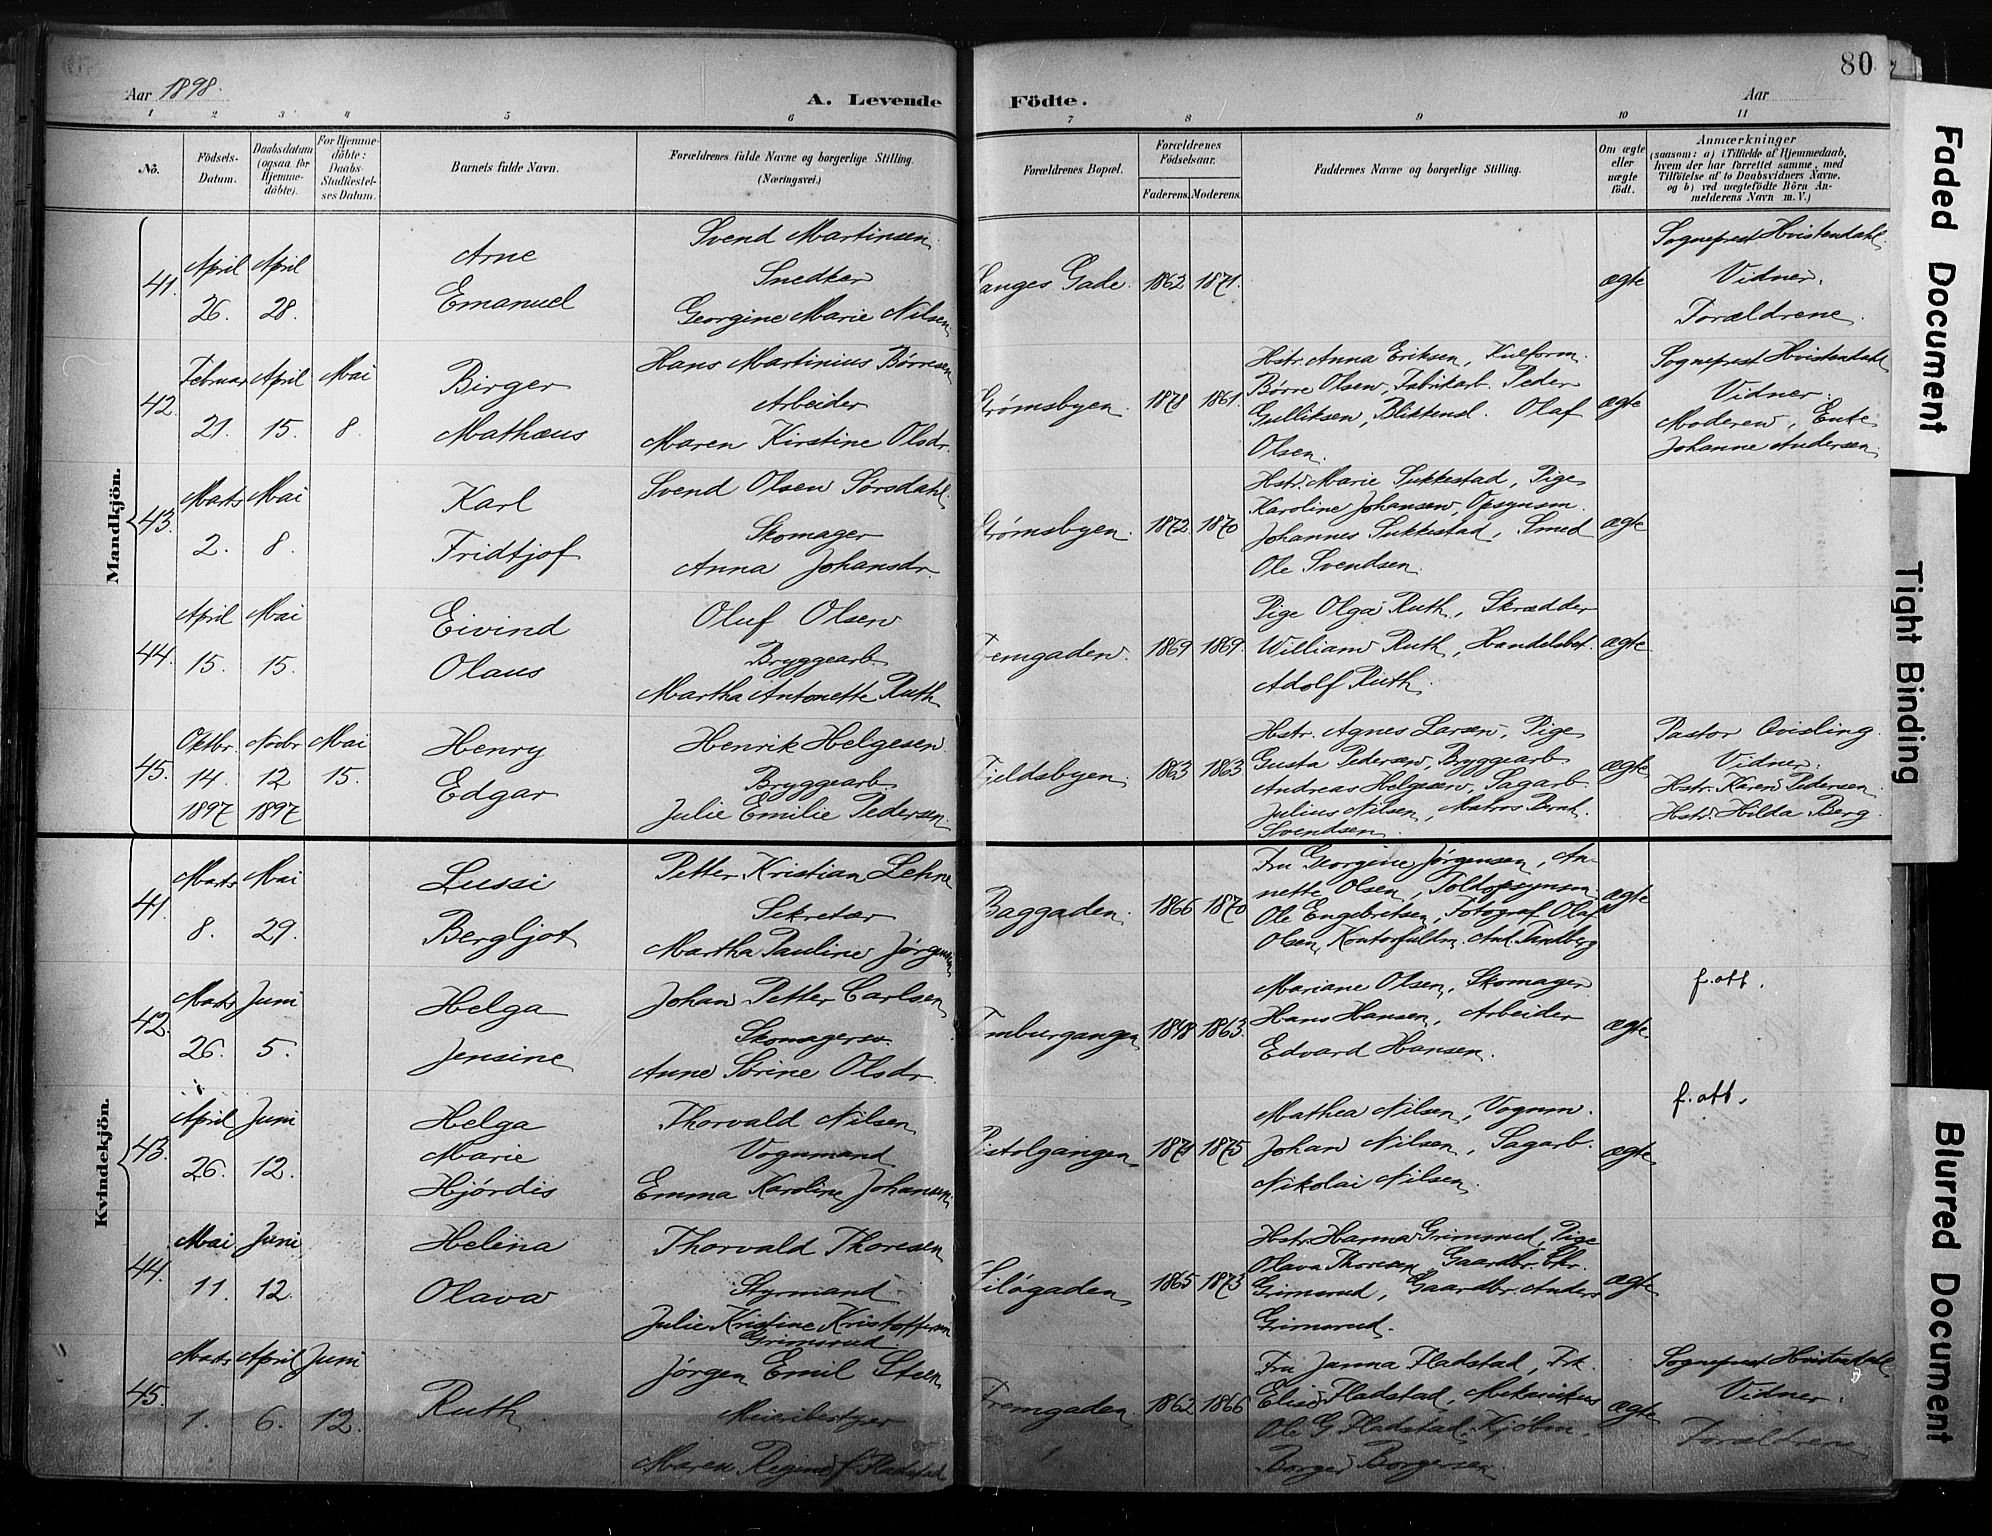 Aar 1898.
A. Levende
Födte.
Aar
80
1
2
3
4
5
6
7
8
9
10
11
No.
Födsels-
Datum.
Daabsdatum
(ogsaa for
Hjemme-
döbte).
For Hjemme-
döbte:
Daabs-
Stadfæstel-
ses Datum.
Barnets fulde Navn.
Forældrenes fulde Navne og borgerlige Stilling.
(Næringsvei.)
Forældrenes Bopæl.
Forældrenes
Födselsaar.
Faderens.
Moderens.
Faddernes Navne og borgerlige Stilling.
Om ægte
eller
uægte
födt.
Anmærkninger
(saasom: a) i Tilfælde af Hjemmedaab,
hvem der har forrettet samme, med
Tilföielse af to Daabsvidners Navne.
og b) ved uægtefödte Börn An-
melderens Navn m. V.)
Mandkjön.
41.
April
26.
April
28.
Arne
Emanuel
Svend Martinsen
Snedker
Georgine Marie Nilsen
Langes Gade.
1862
1871.
ægte
Sogneprest Hvistendahl
Vidner.
Forældrene.
42.
Februar
21.
April
15.
Mai
8.
Birger
Mathæus
Hans Martinius Børresen
Arbeider
Maren Kirstine Olsdr.
Strømsbyen.
1878
1861.
Hstr. Anna Eriksen, Kulform.
Børre Olsen, Fabrikarb. Peder
Gulliksen, Blikkensl. Olaf
Olsen.
ægte
Sogneprest Hvistendahl
Vidner.
Moderen, Enke
Johanne Andersen
43.
Marts
2.
Mai
8.
Karl
Fridtjof
Svend Olsen Sørsdahl
Skomager
Anna Johansdr.
Strømsbyen.
1872
1870
Hstr. Marie Sukkestad, Pige
Karoline Johansen, Opsynsm.
Johannes Sukkestad, Smed
Ole Svendsen.
ægte
44.
April
15.
Mai
15.
Eivind
Olaus
Oluf Olsen
Bryggearb
Martha Antonette Ruth
Fremgaden.
1869
1869.
Pige Olga Ruth, Skrædder
William Ruth, Handelsbet.
Adolf Ruth.
ægte
45.
Oktbr.
14.
1897
Novbr
12
1897
Mai
15.
Henry
Edgar
Henrik Helgesen
Bryggearb
Julie Emilie Pedersen.
Fjeldsbyen.
1863
1863
Hstr. Agnes Larsen, Pige
Gusta Pedersen, Bryggearb
Andreas Helgesen, Sagarb.
Julius Nilsen, Matros Bernh.
Svendsen.
ægte
Pastor Qvisling.
Vidner.
Hstr. Karen Pedersen.
Hstr. Hilda Berg
Kvindekjön.
41.
Marts
8.
Mai
29.
Lussi
Bergljot
Petter Kristian Lehne
Sekretær
Martha Pauline Jørgensen
Baggaden.
1866
1870
Fru Georgine Jørgensen, An-
nette Olsen, Toldopsynsm.
Ole Engebretsen, Fotograf Olaf
Olsen, Kontorfuldm. Ant. Tandberg
ægte
42.
Marts
26.
Juni
5.
Helga
Jensine
Johan Petter Carlsen
Skomagersv.
Anne Sørine Olsdr.
Tomburgangen
1848
1863.
Mariane Olsen, Skomager
Hans Hansen, Arbeider
Edvard Hansen.
ægte
f. att.
43.
April
26.
Juni
12.
Helga
Marie
Hjördis
Thorvald Nilsen
Vognmand
Emma Karoline Johansen
Pistolgangen
1871
1875
Mathea Nilsen, Vognm.
Johan Nilsen, Sagarb.
Nikolai Nilsen.
ægte
f. att.
44.
Mai
11.
Juni
12.
Helena
Olava
Thorvald Thoresen
Styrmand
Julie Kristine Kristoffersen
Grimsrud
Siløgaden
1865
1873
Hstr. Hanna Grimsrud, Pige
Olava Thoresen, Gaardbr. Chr.
Grimsrud, Gaardbr. Anders
Grimsrud.
ægte
45.
Marts
1.
April
6.
Juni
12.
Ruth.
Jørgen Emil Steen
Meieribestyrer
Maren Regine f. Fladstad
Fremgaden
1862
1866
Fru Janna Fladstad, Frk.
Elise Fladstad, Mekanikus
Ole G Fladstad, Kjøbm.
Borger Borgersen.
ægte
Sogneprest Hvistendahl
Vidner.
Forældrene
Faded Document
Tight Binding
Blurred Document